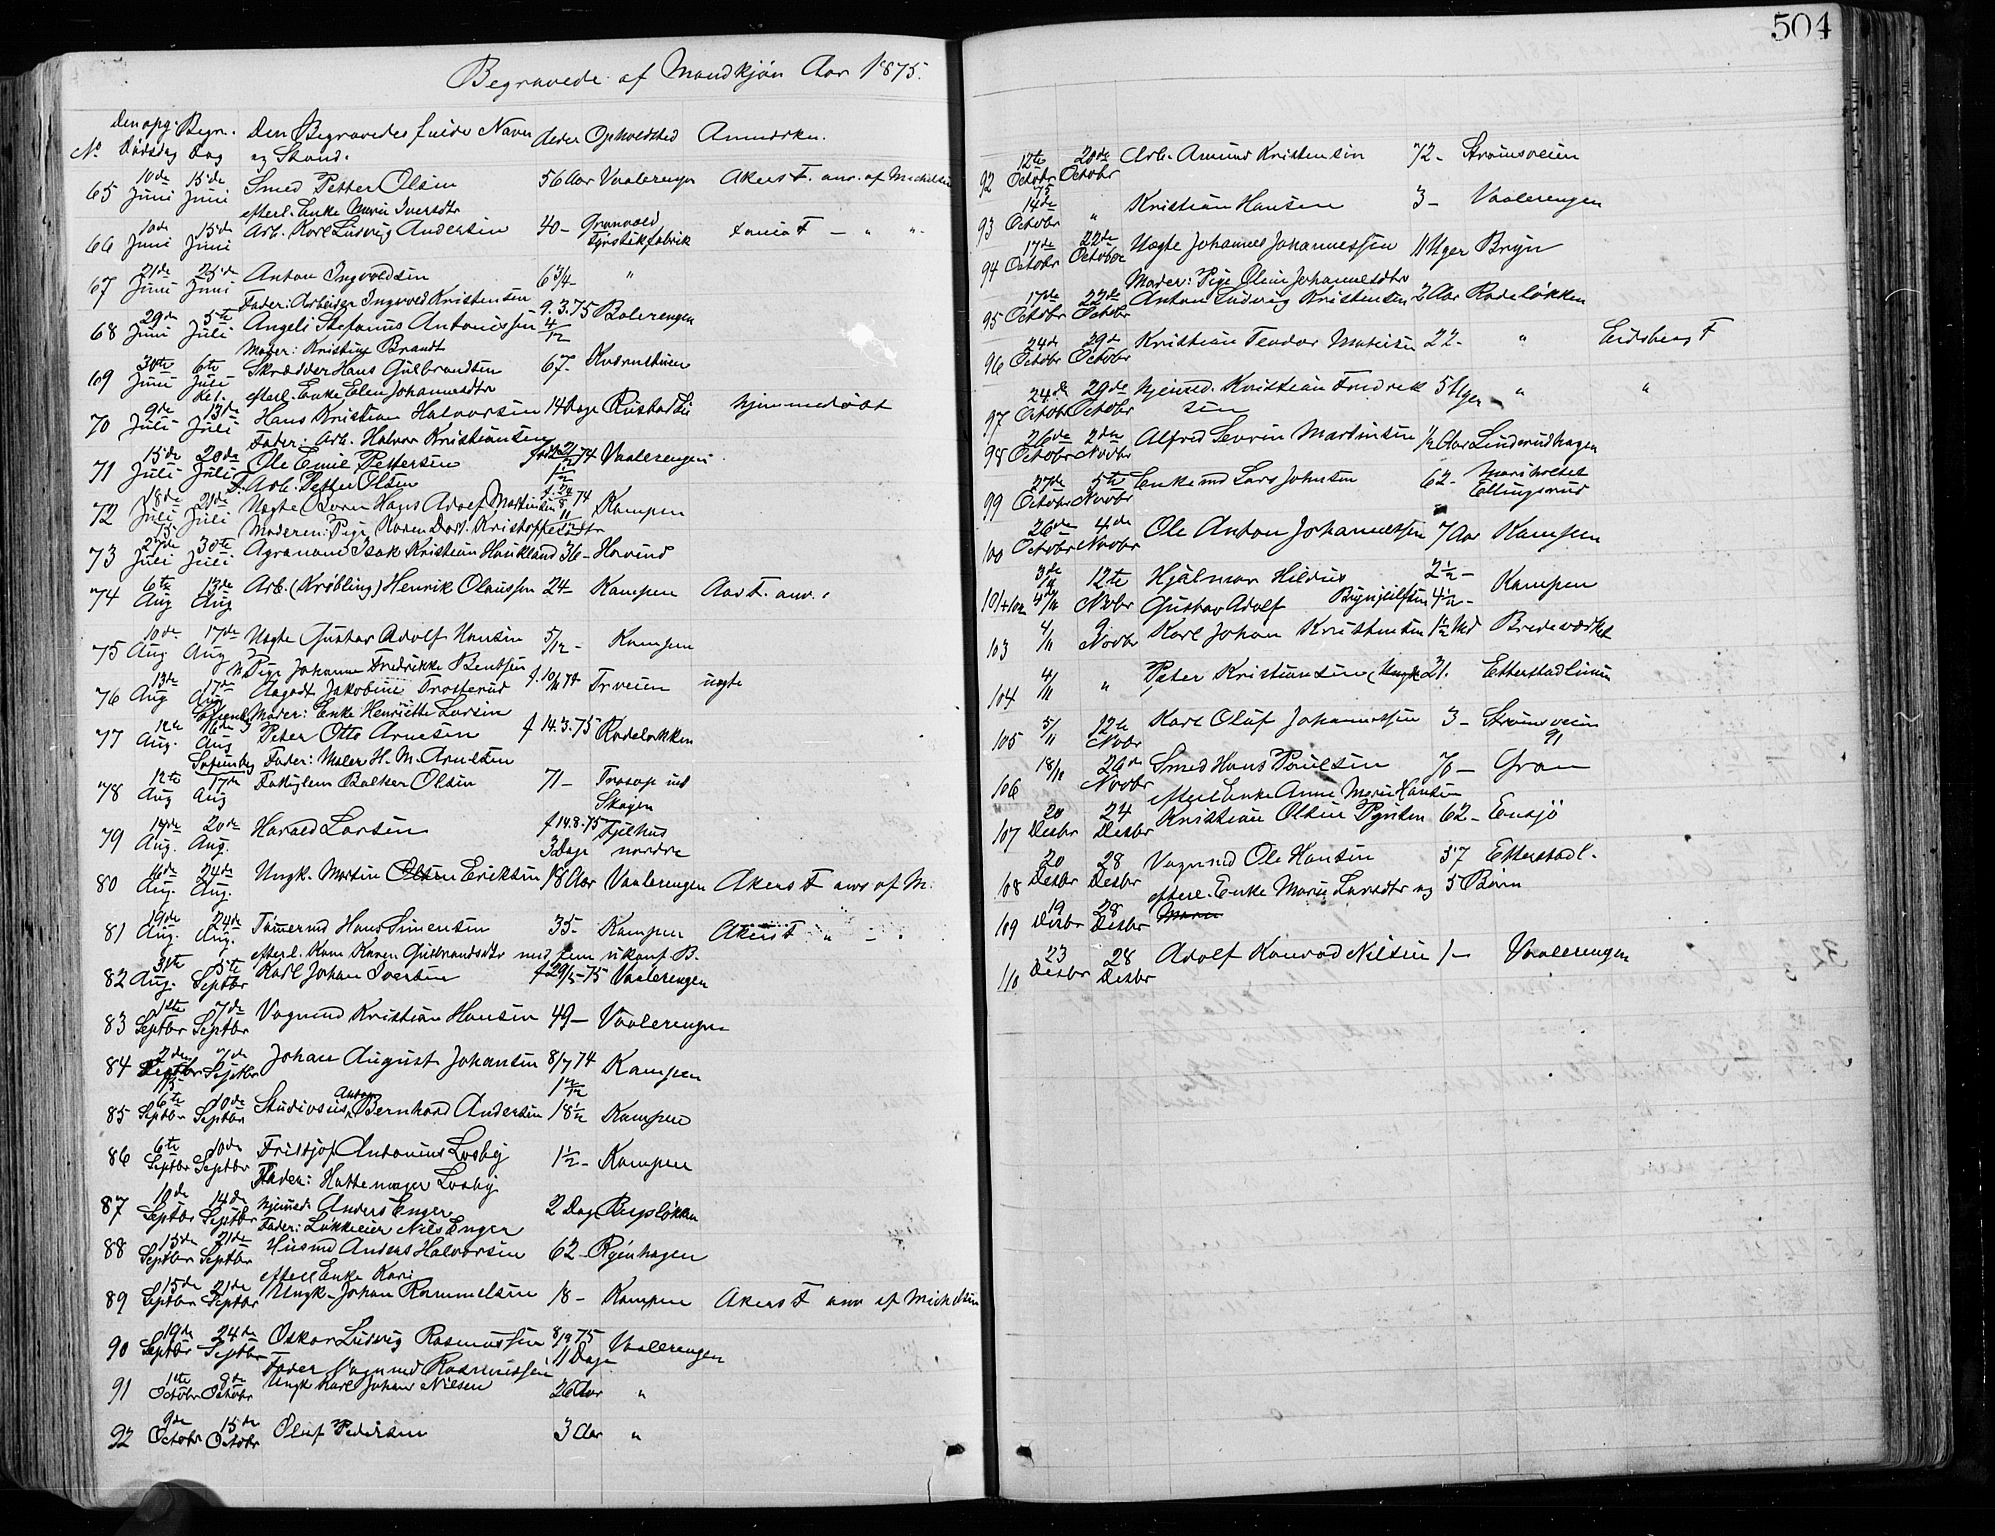 Begravede af Mandkjøn Aar 1875.
No Den opg. Dødsdag Begr. Dag Den Begravedes fulde Navn og Stand. Alder Opholdsted Anmærkn.
65 10de Juni 15de Juni Smed Petter Olsen 56 Aar Vaalerengen Akers F. anv. af Michelsen
efterl. Enke Maria Iversdtr
66 10de Juni 15de Juni Arb. Karl Ludvig Andersen 40 - Grønvold Fyrstikfabrik
67 21de Juni 25de Juni Anton Ingvoldsen 6 3/4 - "
Fader: Arbeider Ingvold Kristensen
68 29de Juni 5te Juli Angeli Stefanus Antonissen 9.3.75 4/12 Valerengen
Moder: Kristine Brandt
69 30te Juni 6te Juli Skrædder Hans Gulbrandsen 67 - Kværnstuen
efterl. Enke Elen Johannesdtr
70 9de Juli 13de Juli Hans Kristian Halvorsen 14 Dage Rustad Eie hjemmedøbt
Fader: Arb. Halvor Kristiansen
71 15de Juli 20de Juli Ole Emil Pettersen 74 Vaalerengen
F. Arb. Petter Olsen
72 18de Juli 21de Juli Uægte Søren Hans Adolf Martinsen 74 Kampen
Moderen: Pige Karen Dort. Kristoffersdtr
73 27de Juli 30te Juli Agronom Isak Kristian Haukland 36 - Hovind
74 6te Aug 13de Aug Arb. (Krøbling) Henrik Olaussen 24 - Kampen Aas F. anv.
75 10de Aug 17de Aug Uægte Gustav Adolf Hansen 5/12 - Kampen
M. Pige Johanne Fredrikke Bentsen
76 13de Aug 17de Aug Aagodt Jakobine Trosterud f. 10/11 74 Tr.veien uægte
Moder: Enke Henriette Larsen
77 12te Aug. 16de Aug Peter Otto Arnesen f 14.3.75 Rodeløkken
Fader: Maler H. M. Arnesen
78 12te Aug 17de Aug Fattiglem Balker Olsen 71 - Trosop ved Skogen
79 17de Aug. 20de Aug. Harald Larsen f 14.8.75 3 Dage Tjelhus nordre
80 16de Aug. 24de Aug. Ungk. Martin Olsen Eriksen 18 Aar Vaalerengen Akers F anv af M.
81 19de Aug. 24de Aug. Tømermd Hans Simensen 35 - Kampen Akers F " - "
efterl. Kone Karen Gulbrandsdtr med fem ukonf B.
82 31te Aug. 5te Septbr Karl Johan Iversen f 29/5 - 75 Vaalerengen
83 1ste Septbr 7de Septbr Vognmd Kristian Hansen 49 - Vaalerengen
84 2den Septbr 7de Septbr Johan August Johansen 8/7 74 1 2/12 Kampen
85 6te Septbr 10de Septbr Studiosus Anton Bernhard Andersen 18 1/2 Kampen
86 6te Septbr 10de Septbr Fritjof Antonius Losby 1 1/2 - Kampen
Fader: Hattemager Losby
87 10de Septbr 14de Septbr hjemmed. Anders Enger 2 Dage Ruseløkken
Fader: Løkkeeier Nils Enger
88 15de Septbr 21de Septbr Husmd Anders Halvorsen 62 - Ryenhagen
efterl Enke Kari
89 15de Septbr 21de Septbr Ungk - Johan Rommelsen 18 - Kampen Akers F anv af Michelsen
90 19de Septbr 24de Septbr Oskar Ludvig Rasmussen 8/9 75 11 Dage Vaalerengen
Fader Vognmd Rasmussen
91 1ste Octobr 8de Octobr Ungk Karl Johan Nilsen 26 Aar "
92 9de Octobr 15de Octobr Oluf Pedersen 3 Aar "
504
92 12te Octobr 75 20de Octobr Arb. Amund Kristensen 72 - Strømsveien
93 14de Octobr " Kristian Hansen 3 - Vaalerengen
94 17de Octobr 22de Octobr Uægte Johannes Johannessen 11 Uger Bryn
Moder: Pige Oline Johannesdtr
95 17de Octobr 22de Octobr Anton Ludvig Kristensen 2 Aar Rodeløkken
96 24de Octobr 29de Octobr Kristian Teodor Mateisen 22 - " Eidsberg F
97 24de Octobr 29de Octobr hjemmed. Kristian Fredriksen 5 Uger " "
98 26de Octobr 2den Novbr Alfred Sevrin Martinsen 1/2 Aar Linderudhagen
99 27de Octobr 5te Novbr Enkemd Lars Johnsen 62 - Ellingsrud
100 26de Octobr 4de Novbr Ole Anton Johannessen 7 Aar Kampen
101+102 3de/11 4de/11 12te Novbr Hjalmar Hildus 2 1/2 - Gustav Adolf Brynjulfsen 4 1/2 - Kampen
103 4/11 9 Novbr Karl Johan Kristensen 1 1/2 Md Bredeværket
104 4/11 " Peter Kristiansen (Ungk 21. Etterstadlinien
105 5/11 12te Novbr Karl Oluf Johannessen 3 - Strømsveien 91
106 18/11 26de Novbr Smed Hans Poulsen 76 - Gran
efterl Enke Anne Marie Hansen
107 20 Desbr 24 Desbr Kristian Olsen Pynten 62 - Ensjø
108 20 Desbr 28 Desbr Vognmd Ole Hansen 37 Etterstadl.
efterl. Enke Marie Larsdtr og 5 Børn
109 19 Desbr 28 Desbr
110 23 Desbr 28 Desbr Adolf Konrad Nilsen 1 - Vaalerengen